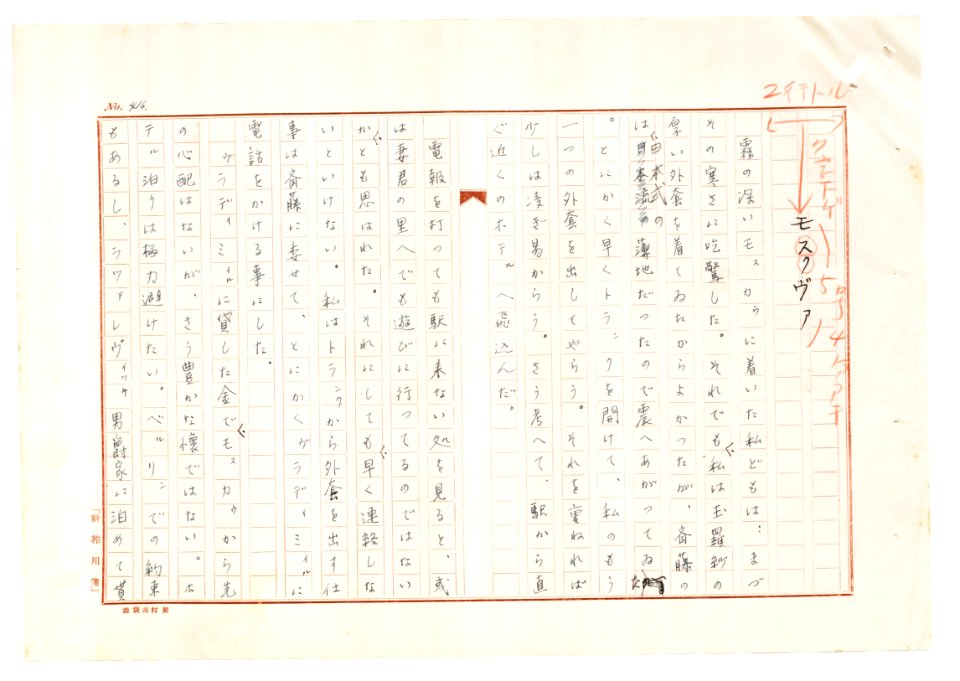 コイチトル
5号4分アキ
モスクヴァ
霧の深いモスカウに着いた私どもは、まづ
その寒さに吃驚した。それでも、私は玉羅紗の
厚い外套を着てゐたからよかつたが、斉藤の
は日本式の薄地だつたので震へあがつてゐ
。とにかく早くトランクを開けて、私のもう
一つの外套を出してやらう。それを重ねれば
少しは凌ぎ易からう。さう考へて、駅から直
ぐ近くのホテルへ飛込んだ。
電報を打つても駅に来ない処を見ると、或
は妻君の里へでも遊びに行つてるのではない
かとも思はれた。それにしても、早く連絡しな
いといけない。私はトランクから外套を出す仕
事は斉藤に委せて、とにかくヴラディミイルに
電話をかける事にした。
ヴラディミイルに貸した金で、モスカウから先
の心配はないが、さう豊かな懐ではない。ホ
テル泊りは極力避けたい。ベルリンでの約束
もあるし、ラツァレヴイツチ男爵家に泊めて貰
No. 416.
池袋 村製